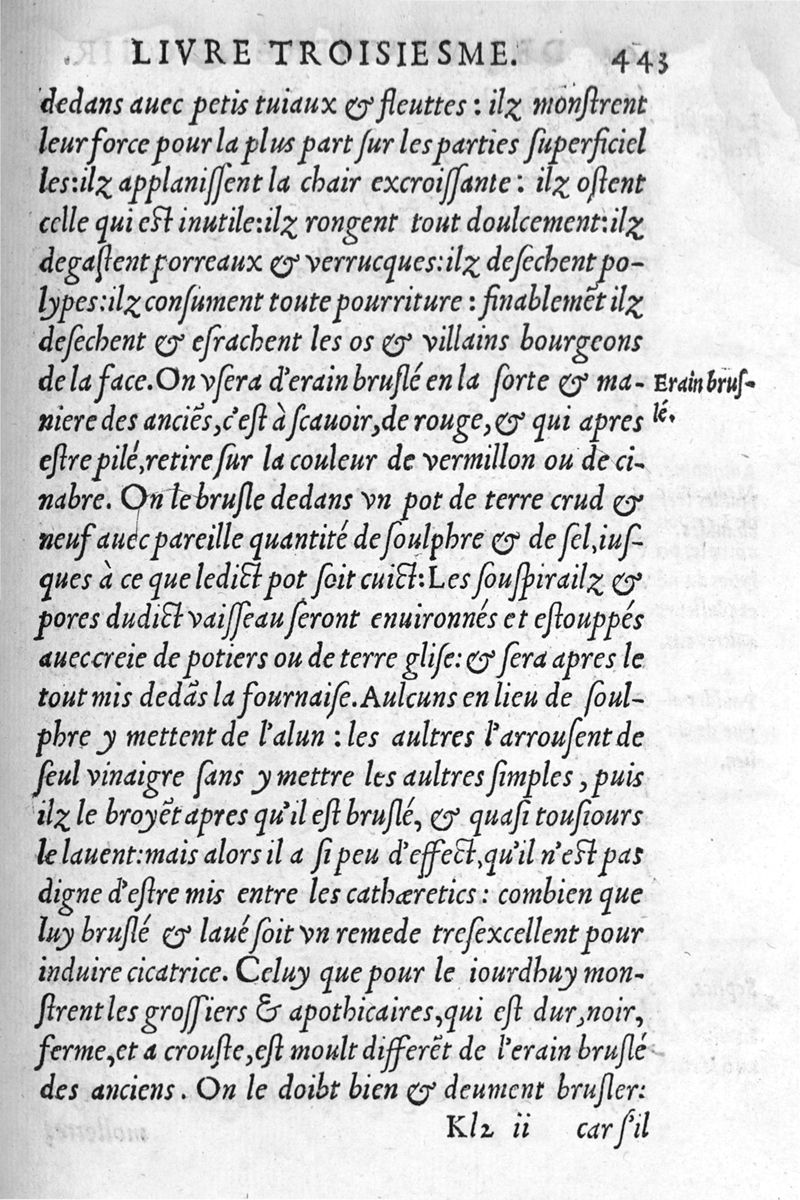 LIVRE TROISIESME. 443
dedans auec petis tuiaux & fleuttes : ilz monſtrent
leur force pour la plus part ſur les parties ſuperficiel
les:ilz applaniſſent la chair excroiſſante : ilz oſtent
celle qui eſt inutile:ilz rongent tout doulcement:ilz
degaſtent porreaux & verrucques:ilz deſechent po-
lypes:ilz conſument toute pourriture : finablemẽt ilz
deſechent & eſrachent les os & villains bourgeons
de la face.On vſera d'erain bruſlé en la ſorte & ma-
niere des anciẽs,c'eſt à ſcauoir,de rouge,& qui apres
eſtre pilé,retire ſur la couleur de vermillon ou de ci-
nabre. On le bruſle dedans vn pot de terre crud &
neuf auec pareille quantité de ſoulphre & de ſel,iuſ-
ques à ce que ledict pot ſoit cuict:Les ſouſpirailz &
pores dudict vaiſſeau ſeront enuironnés et eſtouppés
auec creie de potiers ou de terre gliſe: & ſera apres le
tout mis dedãs la fournaiſe.Aulcuns en lieu de ſoul-
phre y mettent de l'alun : les aultres l'arrouſent de
ſeul vinaigre ſans y mettre les aultres ſimples , puis
ilz le broyẽt apres qu'il eſt bruſlé, & quaſi touſiours
le lauent:mais alors il a ſi peu d'effect,qu'il n'eſt pas
digne d'eſtre mis entre les cathæretics : combien que
luy bruſlé & laué ſoit vn remede treſexcellent pour
induire cicatrice. Celuy que pour le iourdhuy mon-
ſtrent les groſſiers & apothicaires,qui eſt dur,noir,
ferme,et a crouſte,eſt moult differẽt de l'erain bruſlé
des anciens. On le doibt bien & deument bruſler:
Kk ii car ſ'il
Erain bruſ-
lé.